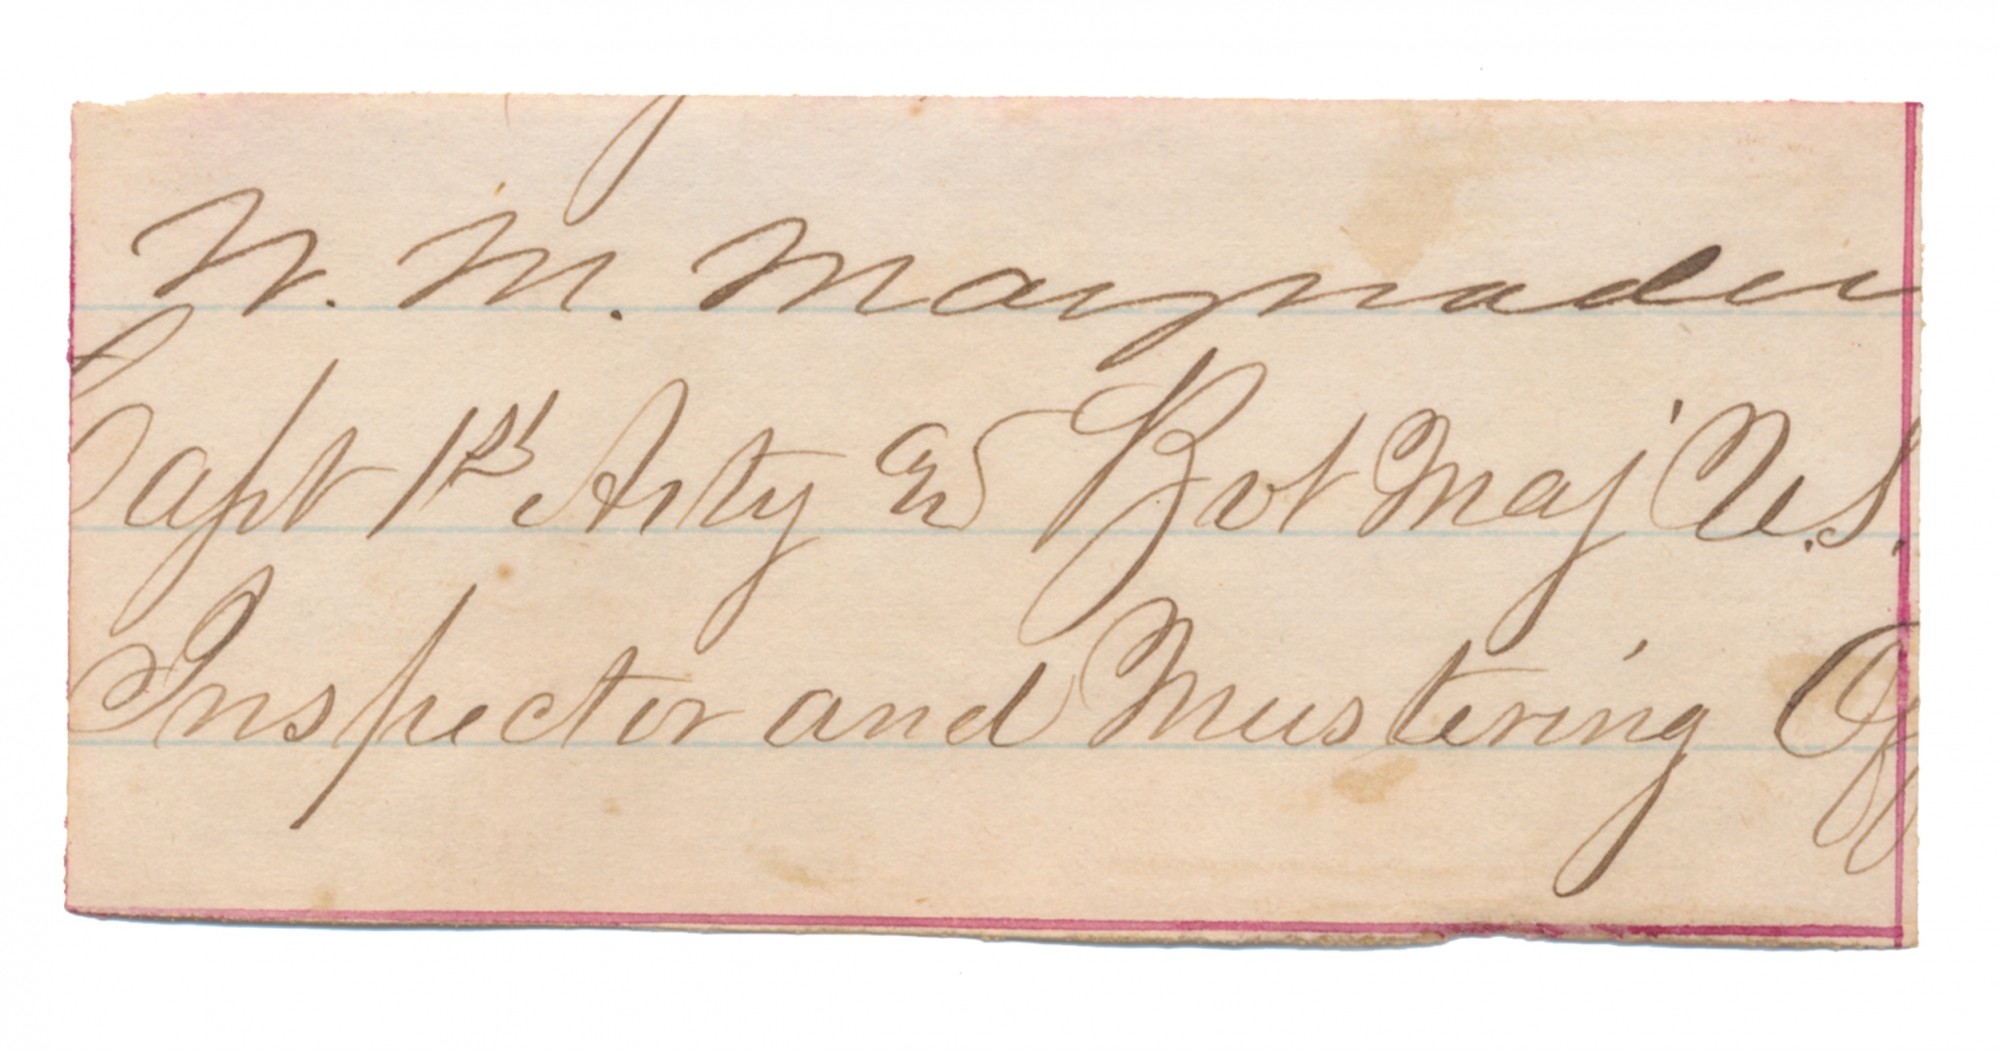 W. M. Maynadier
Capt 1st Arty & Bvt Maj U.S.
Inspector and Mustering Off